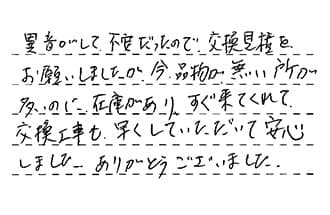 異音がして、不安だったので、交換見積を
お願いしましたが、今、品物が、無い所が
多いのに、在庫があり、すぐ来てくれて、
交換工事も、早くしていただいて安心
しました。ありがとうございました。